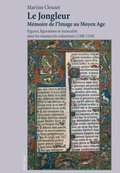 Martine Clouzot
Le Jongleur
Mémoire de l'Image au Moyen Age
Figures, figurations et musicalité
dans les manuscrits enluminés (1200-1330)